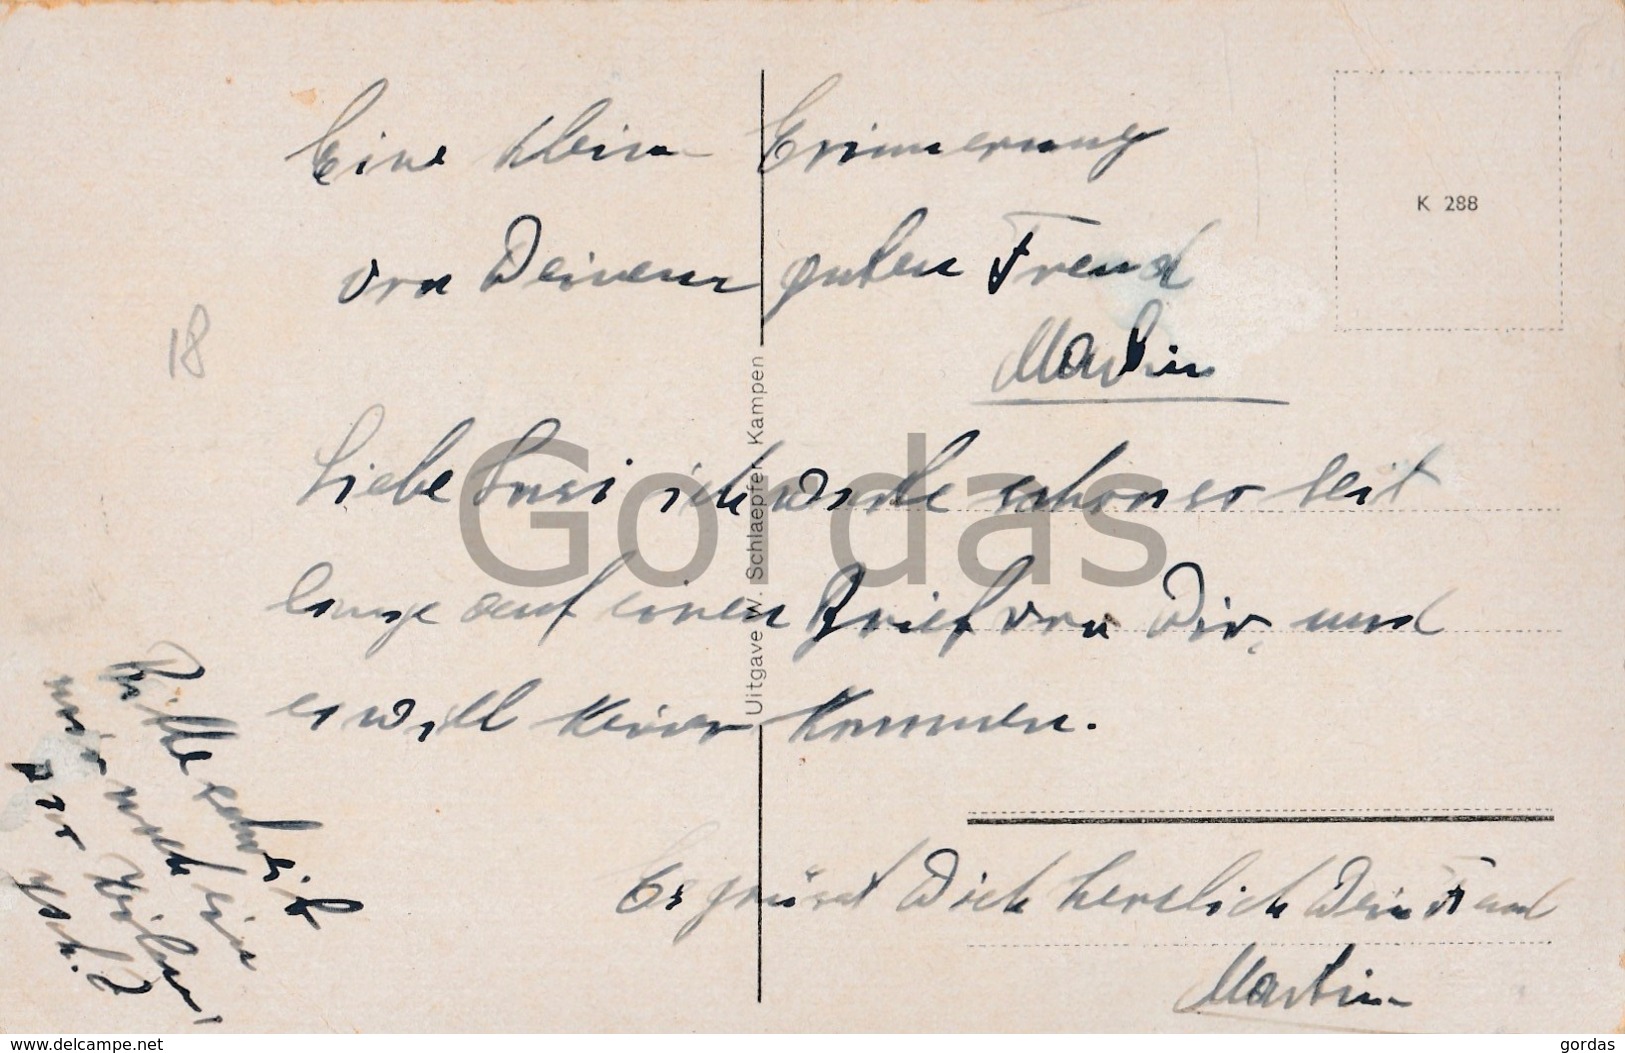 Eine klein Erinnerung
von Deinem guten Freund
Martin
K 288
18
Liebe Susi ich warte schon so seit
lange auf einen Brief von Dir, und
es will keiner kommen.
Bitte schreib
mir noch ein
par Zeilen!
Es grüsst Dich herzlich Dein Freund
Martin
Uitgave W. Schlaepfer, Kampen
Gordas
www.delcampe.net
gordas